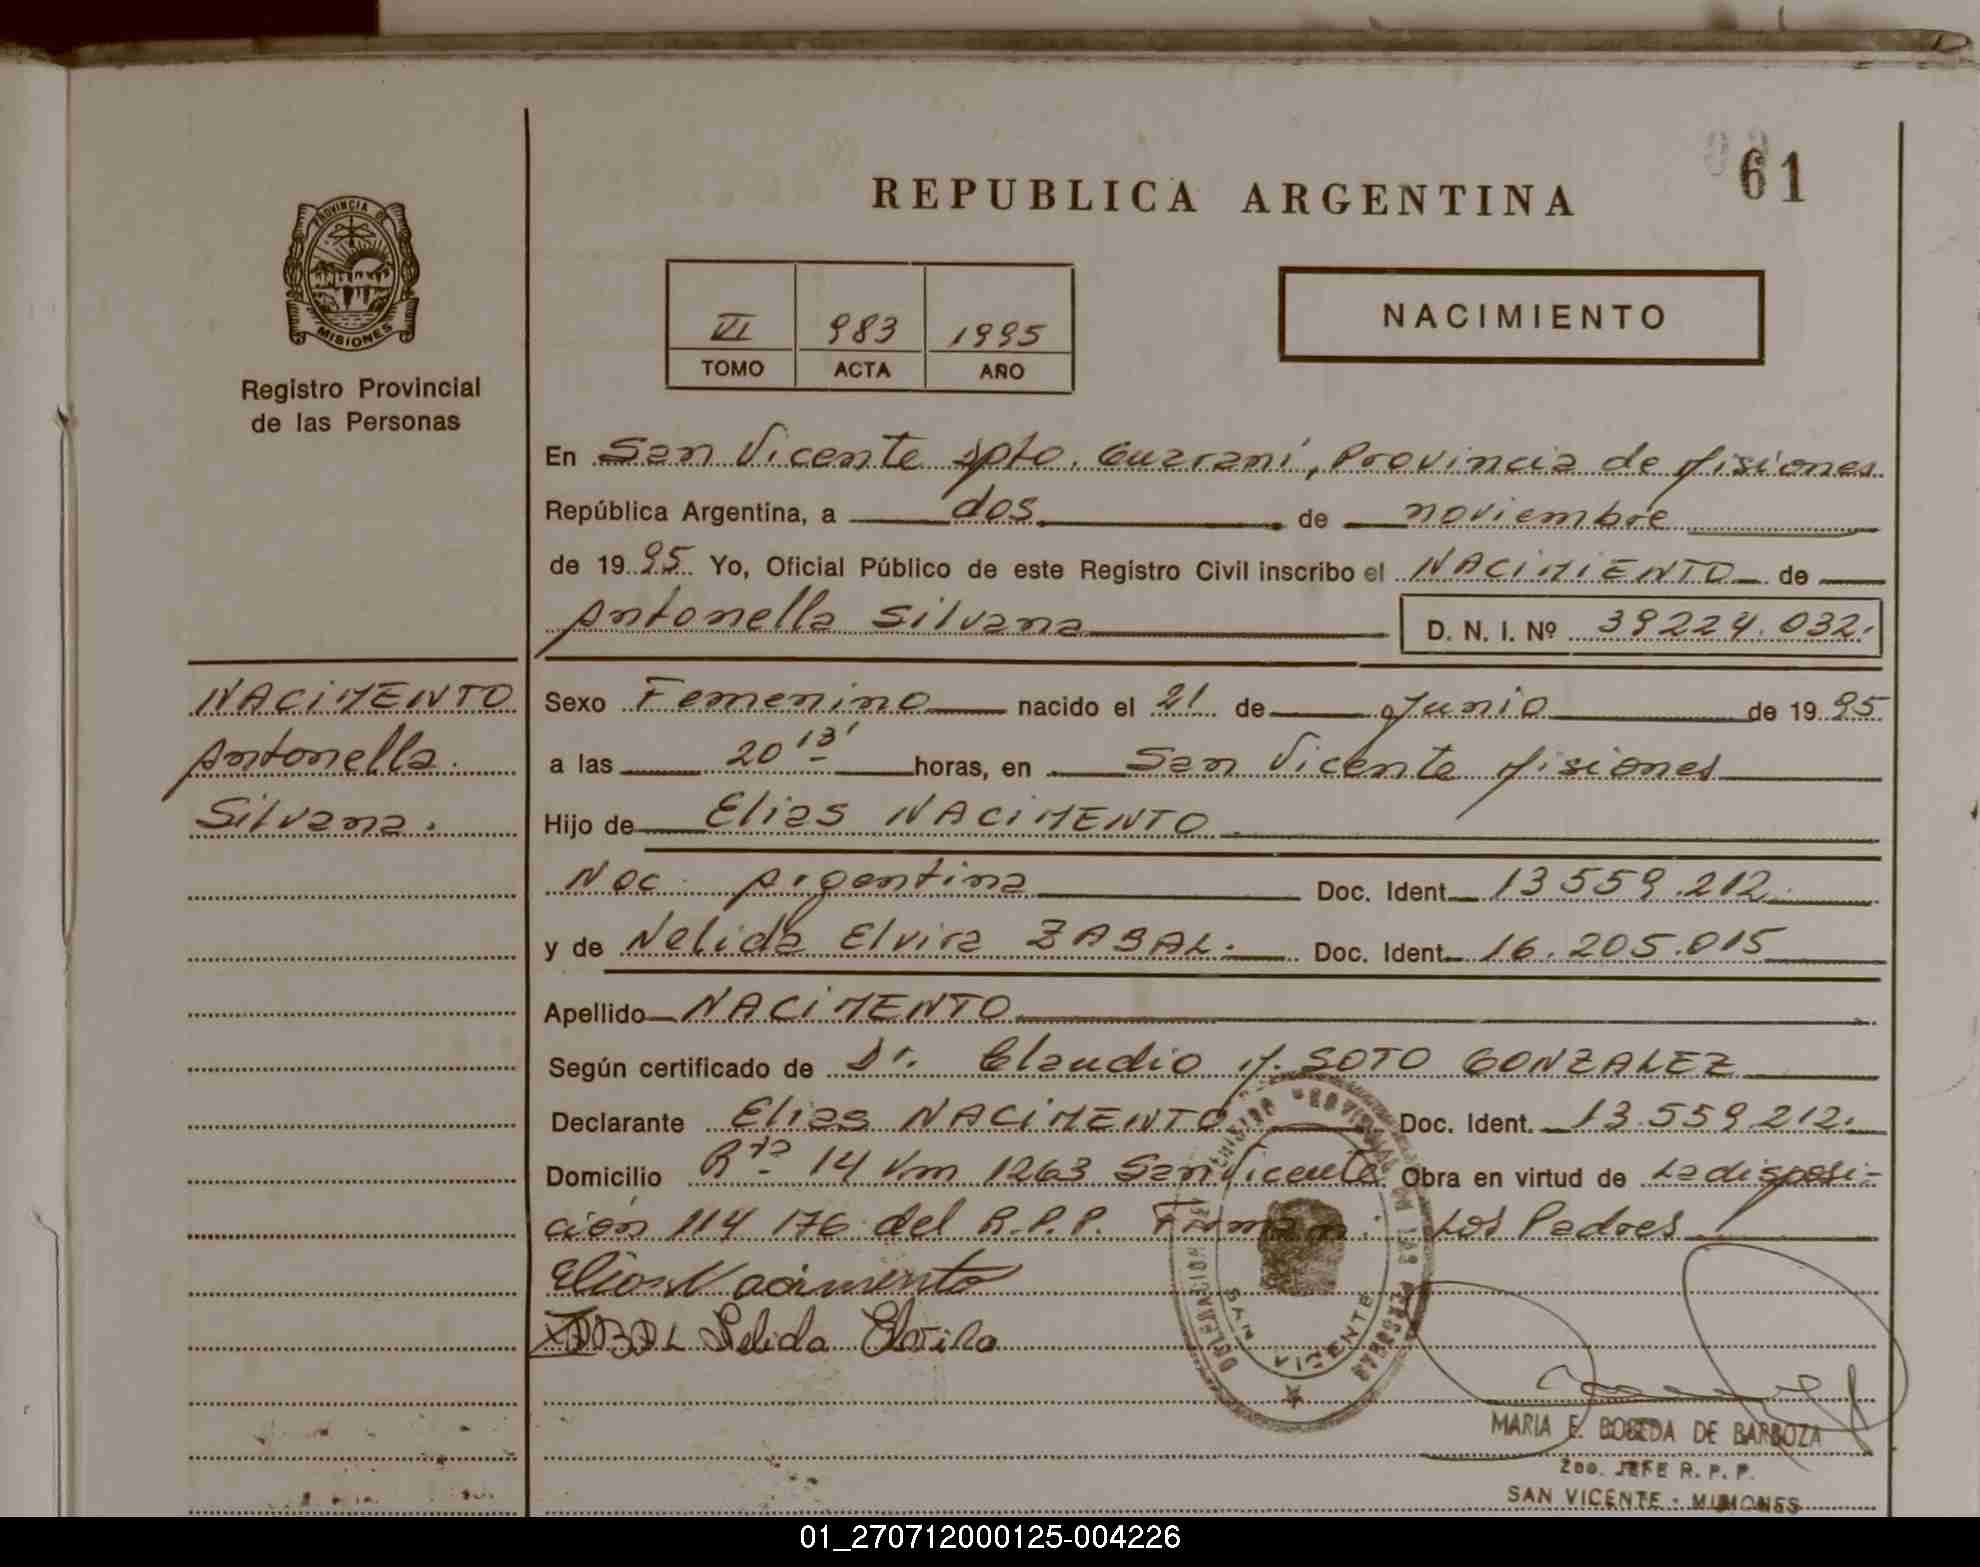 61
REPUBLICA ARGENTINA
PROVINCIA DE
MISIONES
Registro Provincial
de las Personas
VI 983 1995
TOMO ACTA AÑO
NACIMIENTO
En San Vicente Dpto. Guaraní, Provincia de Misiones
República Argentina, a dos de noviembre
de 1995 Yo, Oficial Público de este Registro Civil inscribo el NACIMIENTO de
Antonella Silvana D. N. I. Nº 39224.032.
NACIMENTO
Antonella
Silvana.
Sexo Femenino nacido el 21 de Junio de 1995
a las 20 13' horas, en San Vicente Misiones
Hijo de Elias NACIMENTO
Nac. Argentina Doc. Ident. 13559.212.
y de Nelida Elvira ZABAL. Doc. Ident. 16.205.015
Apellido NACIMENTO
Según certificado de Dr. Claudio M. SOTO GONZALEZ
Declarante Elias NACIMENTO Doc. Ident. 13.559.212.
Domicilio Rta 14 Km 1263 San Vicente Obra en virtud de La disposi-
ción 114 176 del R.P.P. Firman. Los Padres
Elias Nacimento
ZABAL Nelida Elvira
SAN VICENTE
MARIA E. BOBEDA DE BARBOZA
2do. JEFE R. P. P.
SAN VICENTE - MISIONES
01_270712000125-004226